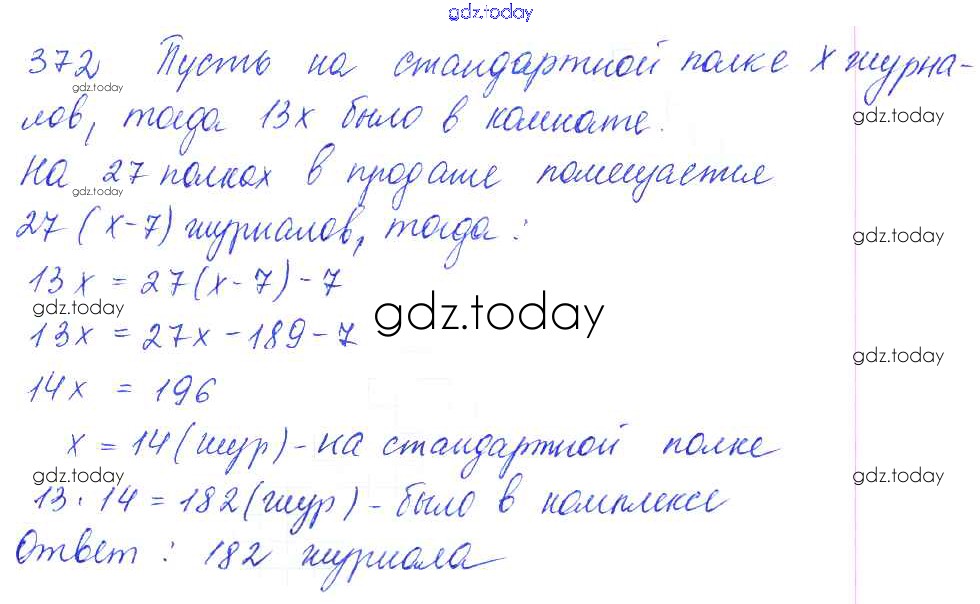 gdz.today
372 Пусть на стандартной полке х журна-
gdz.today
лов, тогда 13х было в комнате.
gdz.today
На 27 полках в продаже помещается
gdz.today
27 (х-7) журналов, тогда:
gdz.today
13х = 27(х-7)-7
gdz.today
gdz.today
13х = 27х-189-7
gdz.today
14х = 196
х = 14 (жур)-на стандартной полке
gdz.today
gdz.today
13·14=182(жур)-было в комплексе
Ответ: 182 журнала